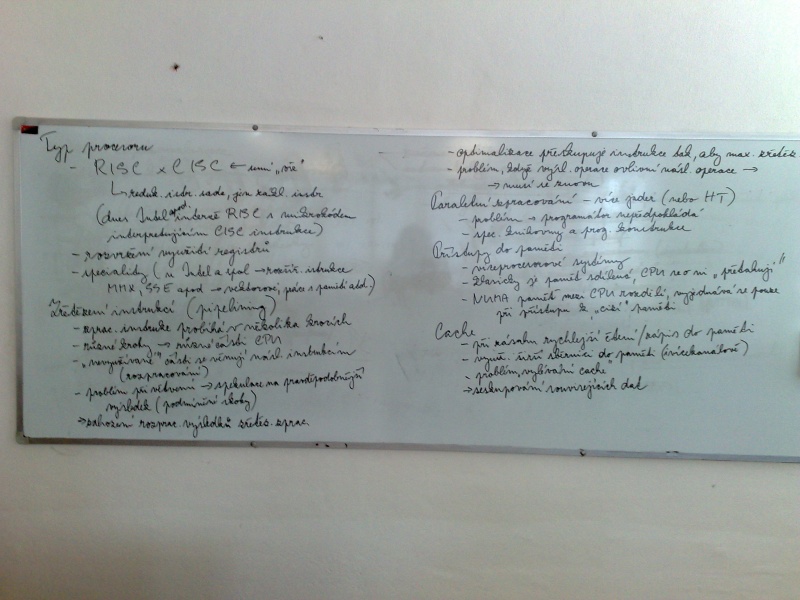 Typ procesoru
- RISC x CISC ← umí „vše"
↳ reduk. instr. sada, jen zákl. instr
(dnes Intel apod. interně RISC s mikrokódem
interpretujícím CISC instrukce)
- rozvržení využití registrů
- speciality (u Intel a spol → rozšíř. instrukce
MMX, SSE apod → vektorové, práce s pamětí atd.)
Zřetězení instrukcí (pipelining)
- zprac. instrukce probíhá v několika krocích
- různé kroky → různé části CPU
- „nevyužívané" části se věnují násl. instrukcím
(rozpracování)
- problém při větvení → spekulace na pravděpodobnější
výsledek (podmíněné skoky)
→ zahození rozprac. výsledků zřetěz. zprac.
- optimalizace přeskupuje instrukce tak, aby max. zřetěz.
- problém, když výsl. operace ovlivní násl. operace →
→ musí se znovu
Paralelní zpracování - více jader (nebo HT)
- problém → programátor nepředpokládá
- spec. knihovny a prog. konstrukce
Přístupy do paměti
- víceprocesorové systémy
- klasicky je paměť sdílená, CPU se o ni „přetahují"
- NUMA paměť mezi CPU rozdělí, vyjednává se pouze
při přístupu k „cizí" paměti
Cache
- při zásahu rychlejší čtení/zápis do paměti
- využ. širší sběrnici do paměti (vícekanálové)
- problém vylévání cache
→ seskupování souvisejících dat